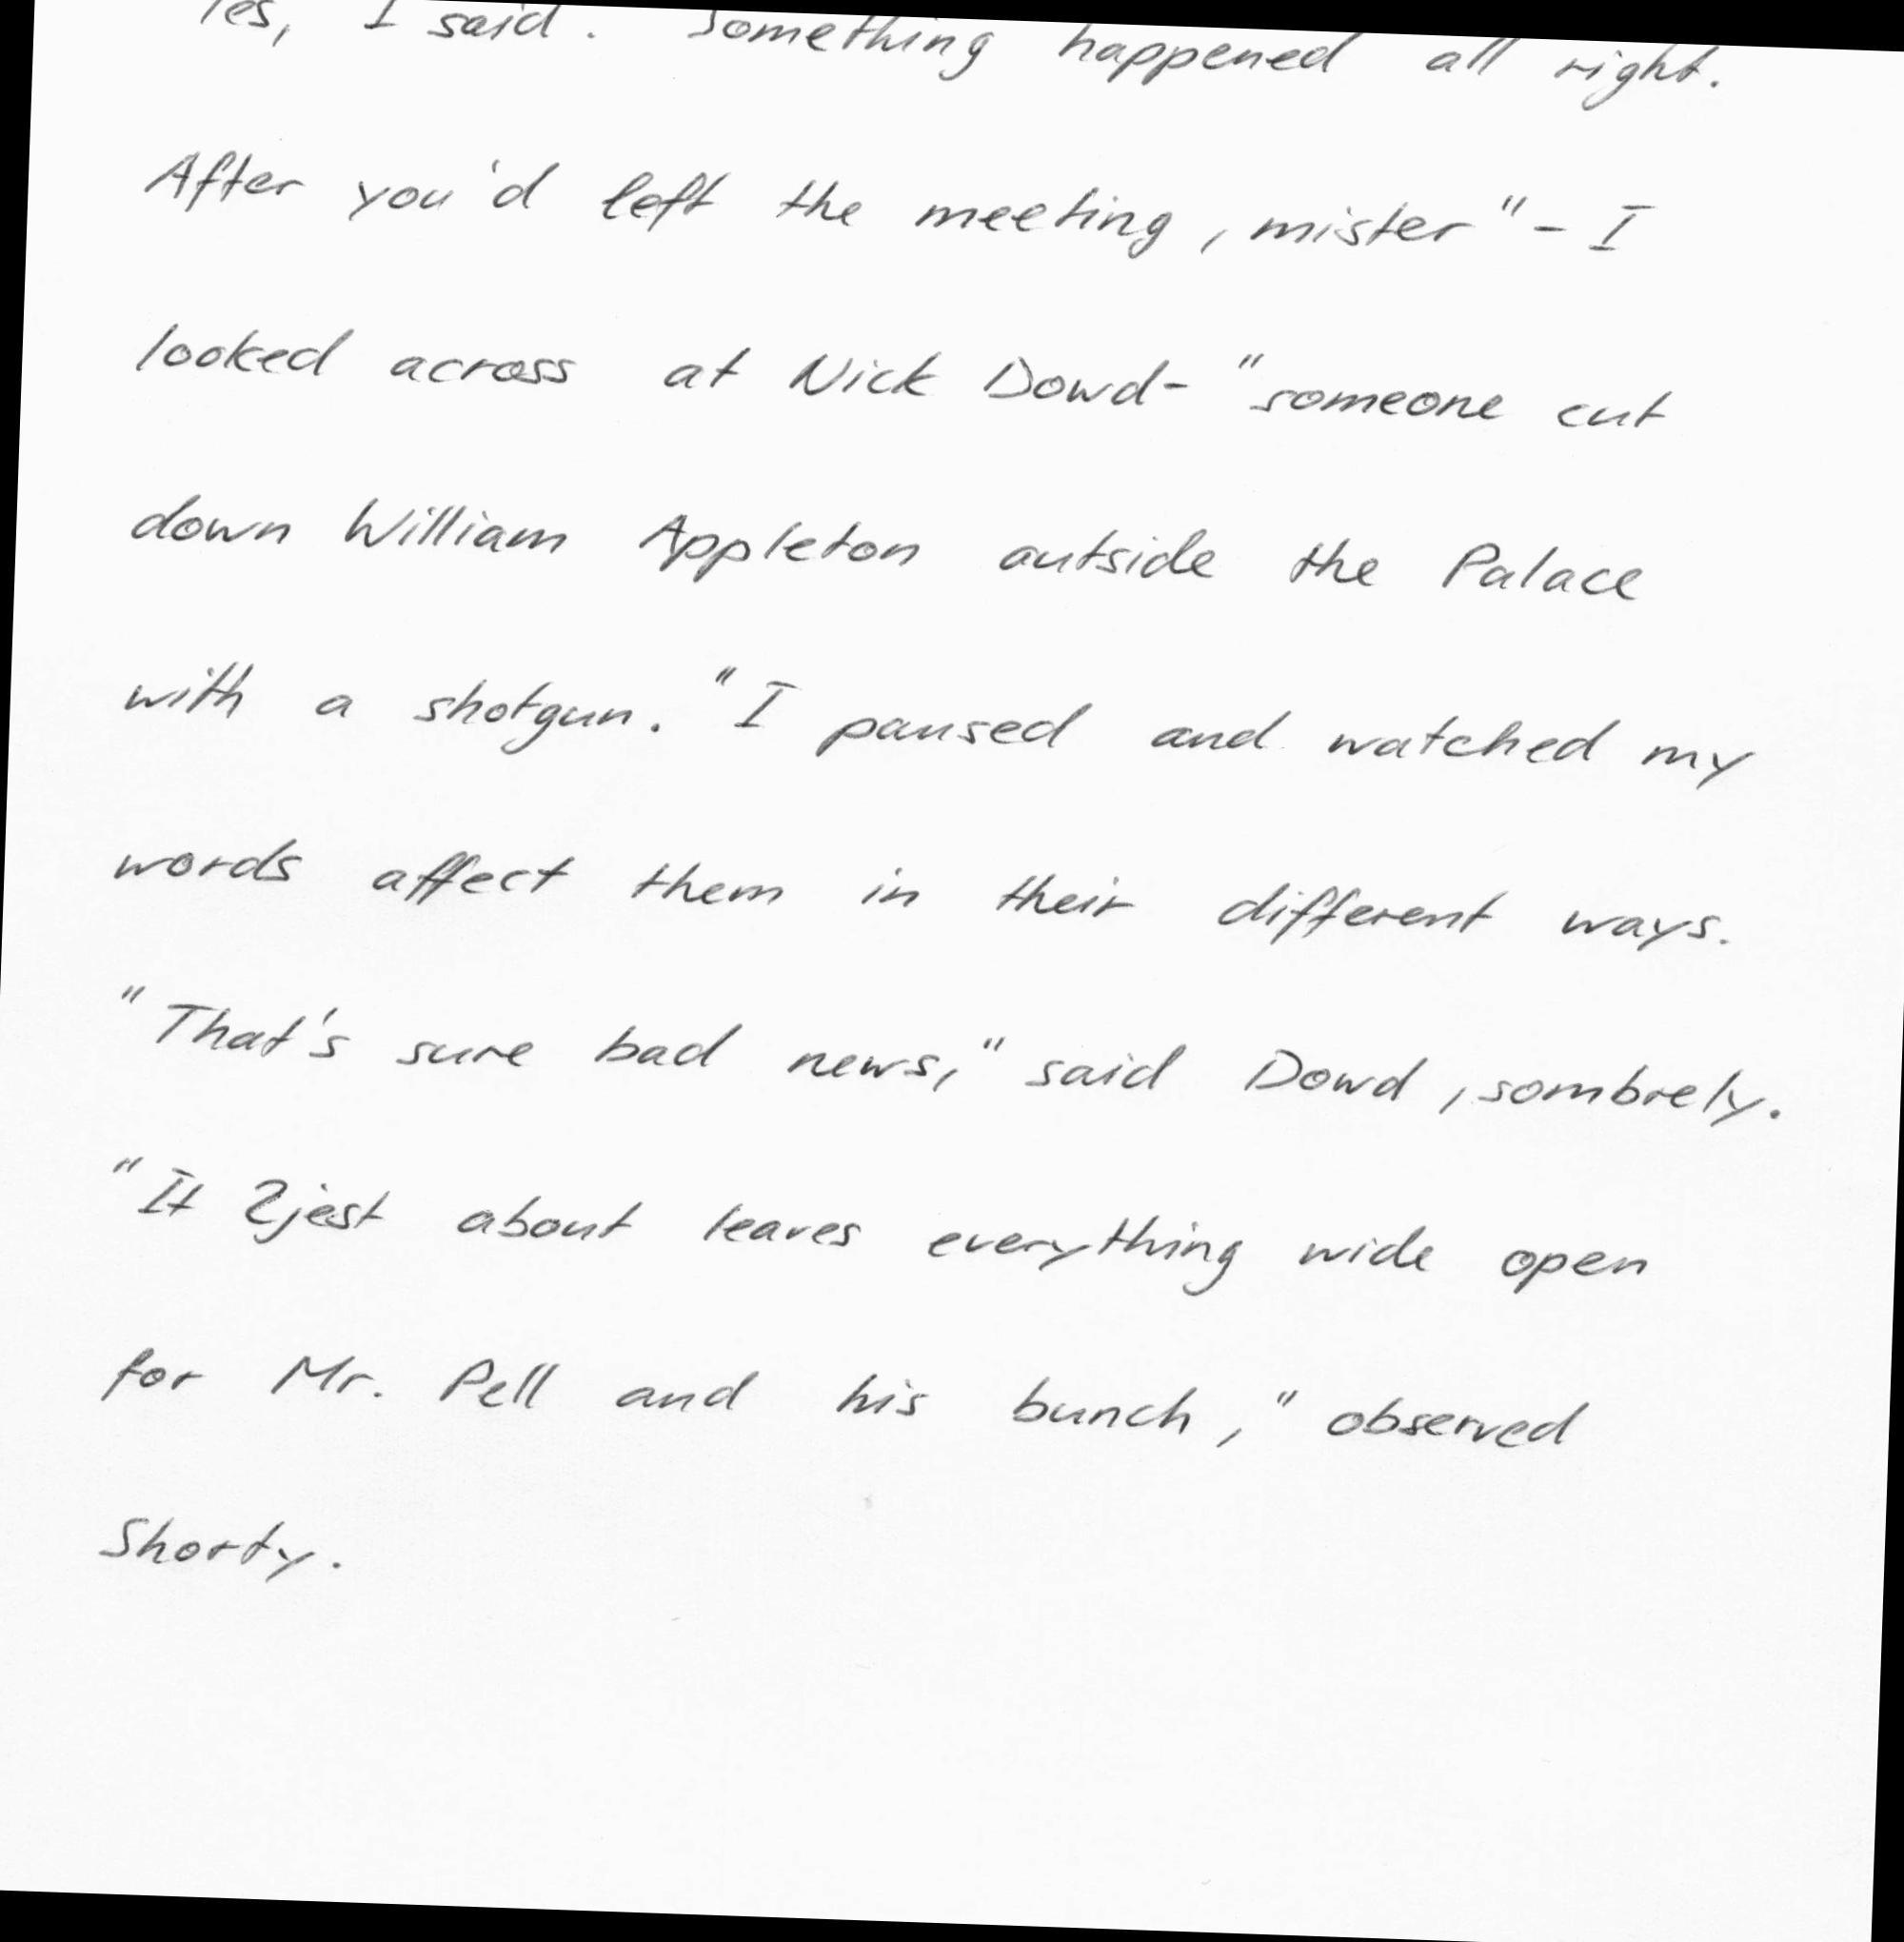 Yes, I said. Something happened all right.
After you'd left the meeting, mister" - I
looked across at Nick Dowd - "someone cut
down William Appleton outside the Palace
with a shotgun. "I paused and watched my
words affect them in their different ways.
"That's sure bad news," said Dowd, sombrely.
"It 2jest about leaves everything wide open
for Mr. Pell and his bunch," observed
Shorty.